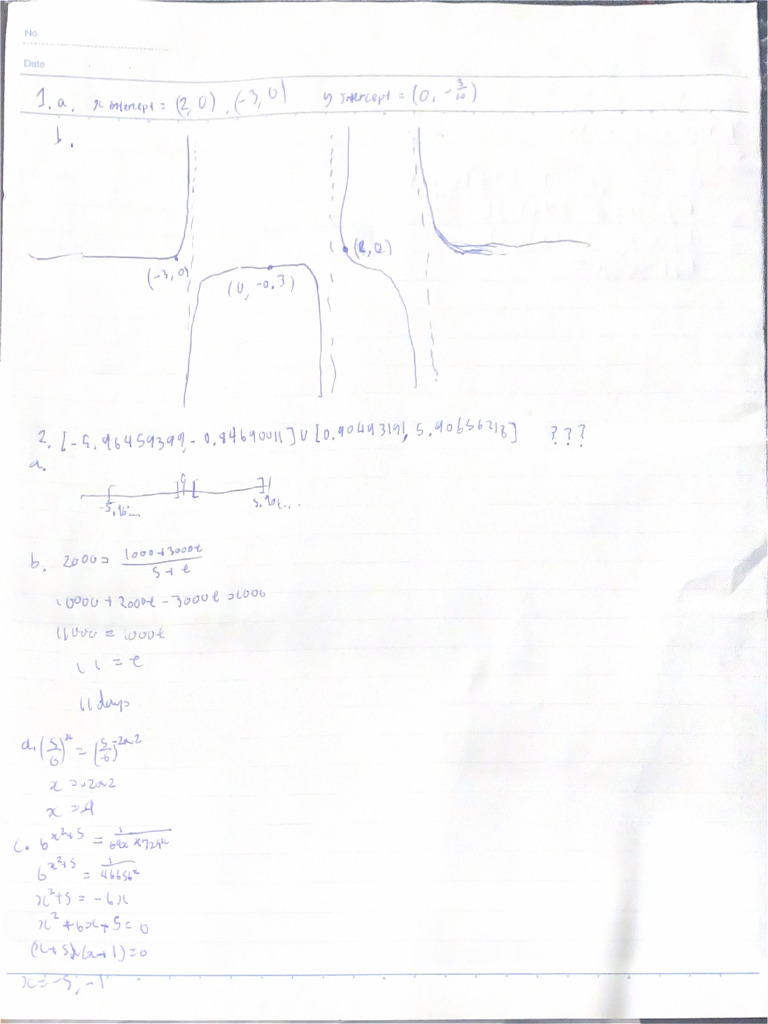 No.
Date
1. a. x intercept = (2, 0), (-3, 0) y intercept = (0, -3/10)
b.
(-3, 0)
(2, 0)
(0, -0.3)
2. [-5.96459399, -0.84690011] ∪ [0.90493191, 5.90656218] ???
a.
0
-5.96...
5.906...
b. 2000 = (1000+3000t)/(5+t)
10000 + 2000t - 3000t = 1000
11000 = 1000t
11 = t
11 days
(5/6)^x = (5/6)^
x =
x = 4
c. 6^(x²+5) =
6^(x²+5) = 1/46656^x
x² + 5 = -6x
x² + 6x + 5 = 0
(x + 5)(x + 1) = 0
x = -5, -1